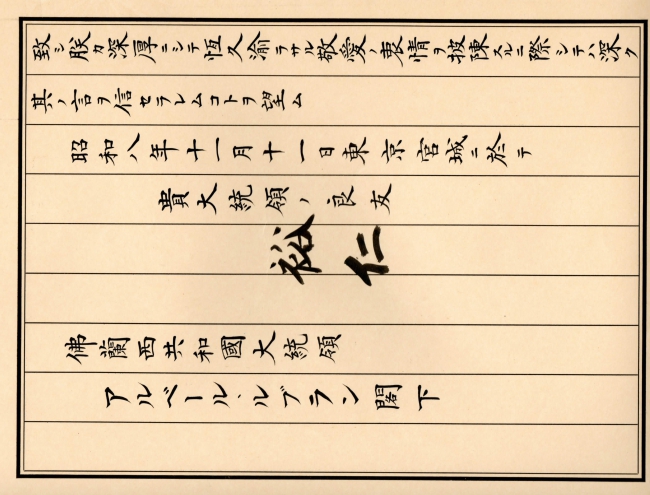 致シ朕カ深厚ニシテ恆久渝ラサル敬愛ノ衷情ヲ披陳スルニ際シテハ深ク
其ノ言ヲ信セラレムコトヲ望ム
昭和八年十一月十一日東京宮城ニ於テ
貴大統領ノ良友
裕仁
佛蘭西共和國大統領
アルベール、ルブラン閣下